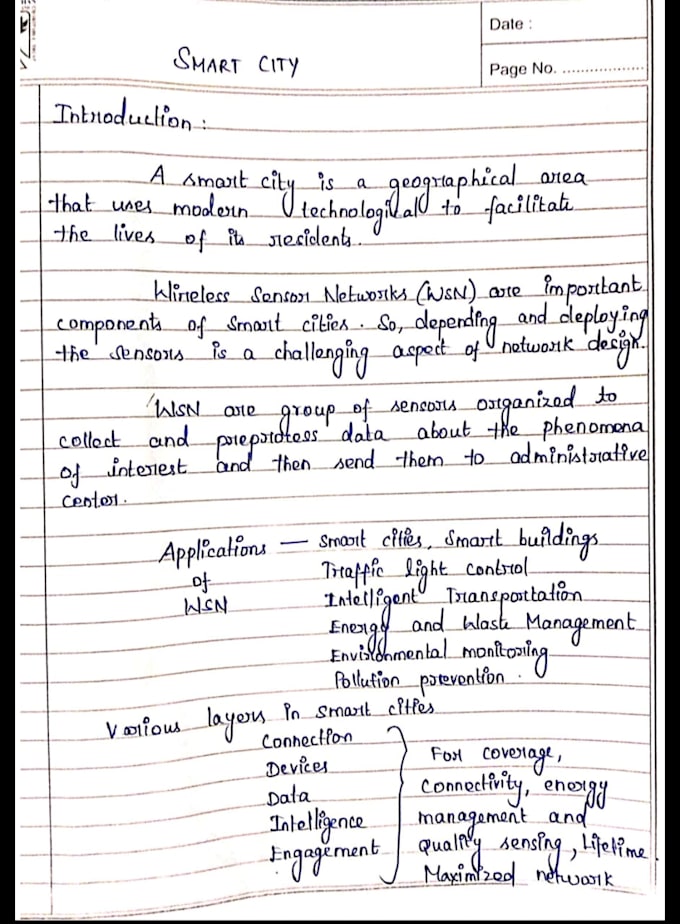 Date :
SMART CITY
Page No. ..................
Introduction :
A smart city is a geographical area
that uses modern technological to facilitate
the lives of its residents.
Wireless Sensor Networks (WSN) are important
components of Smart cities. So, depending and deploying
the sensors is a challenging aspect of network design.
WSN are group of sensors organized to
collect and preprocess data about the phenomena
of interest and then send them to administrative
center.
Applications — Smart cities, Smart buildings
of Traffic light control
WSN Intelligent Transportation
Energy and Waste Management
Environmental monitoring
Pollution prevention.
Various layers in smart cities
Connection
Devices
Data
Intelligence
Engagement
For coverage,
Connectivity, energy
management and
Quality sensing, Lifetime
Maximized network